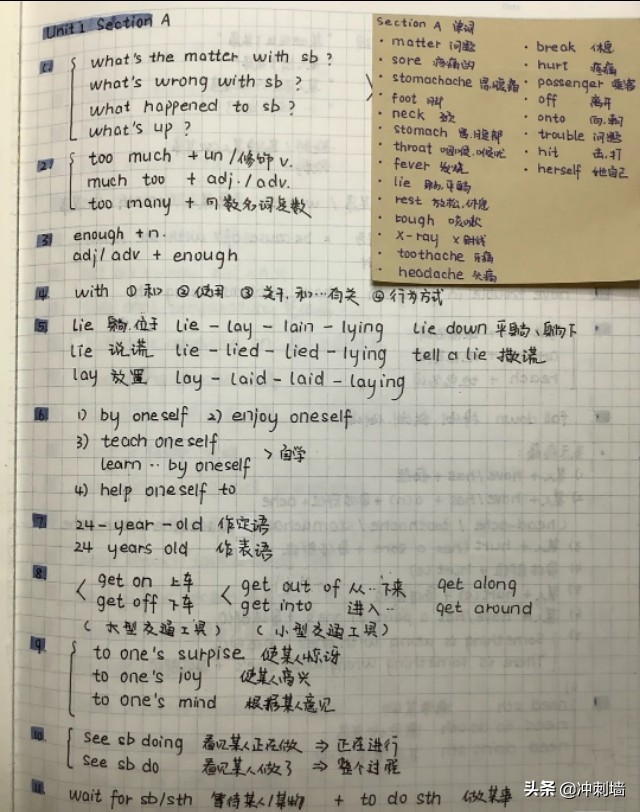 Unit 1 Section A
1. what's the matter with sb ?
what's wrong with sb ?
what happened to sb ?
what's up ?
2. too much + un /修饰 v.
much too + adj. / adv.
too many + 可数名词复数
3. enough + n.
adj/ adv + enough
4. with ① 和 ② 使用 ③ 关于, 和…有关 ④ 行为方式
5. lie 躺,位于 lie - lay - lain - lying lie down 平躺、躺下
lie 说谎 lie - lied - lied - lying tell a lie 撒谎
lay 放置 lay - laid - laid - laying
6. 1) by oneself 2) enjoy oneself
3) teach oneself
learn ·· by oneself > 自学
4) help oneself to
7. 24-year-old 作定语
24 years old 作表语
8. get on 上车 get out of 从··下来 get along
get off 下车 get into 进入·· get around
( 大型交通工具 ) ( 小型交通工具 )
9. to one's surpise 使某人惊讶
to one's joy 使某人高兴
to one's mind 根据某人意见
10. see sb doing 看见某人正在做 ⇒ 正在进行
see sb do 看见某人做了 ⇒ 整个过程
11. wait for sb/sth 等待某人/某物 + to do sth 做某事
Section A 单词
· matter 问题
· sore 疼痛的
· stomachache 胃腹痛
· foot 脚
· neck 颈
· stomach 胃.腹部
· throat 咽喉.喉咙
· fever 发烧
· lie 躺.平躺
· rest 放松.休息
· cough 咳嗽
· x-ray x射线
· toothache 牙痛
· headache 头痛
· break 休息
· hurt 疼痛
· passenger 乘客
· off 离开
· onto 向.朝
· trouble 问题
· hit 击.打
· herself 她自己
头条 @冲刺墙